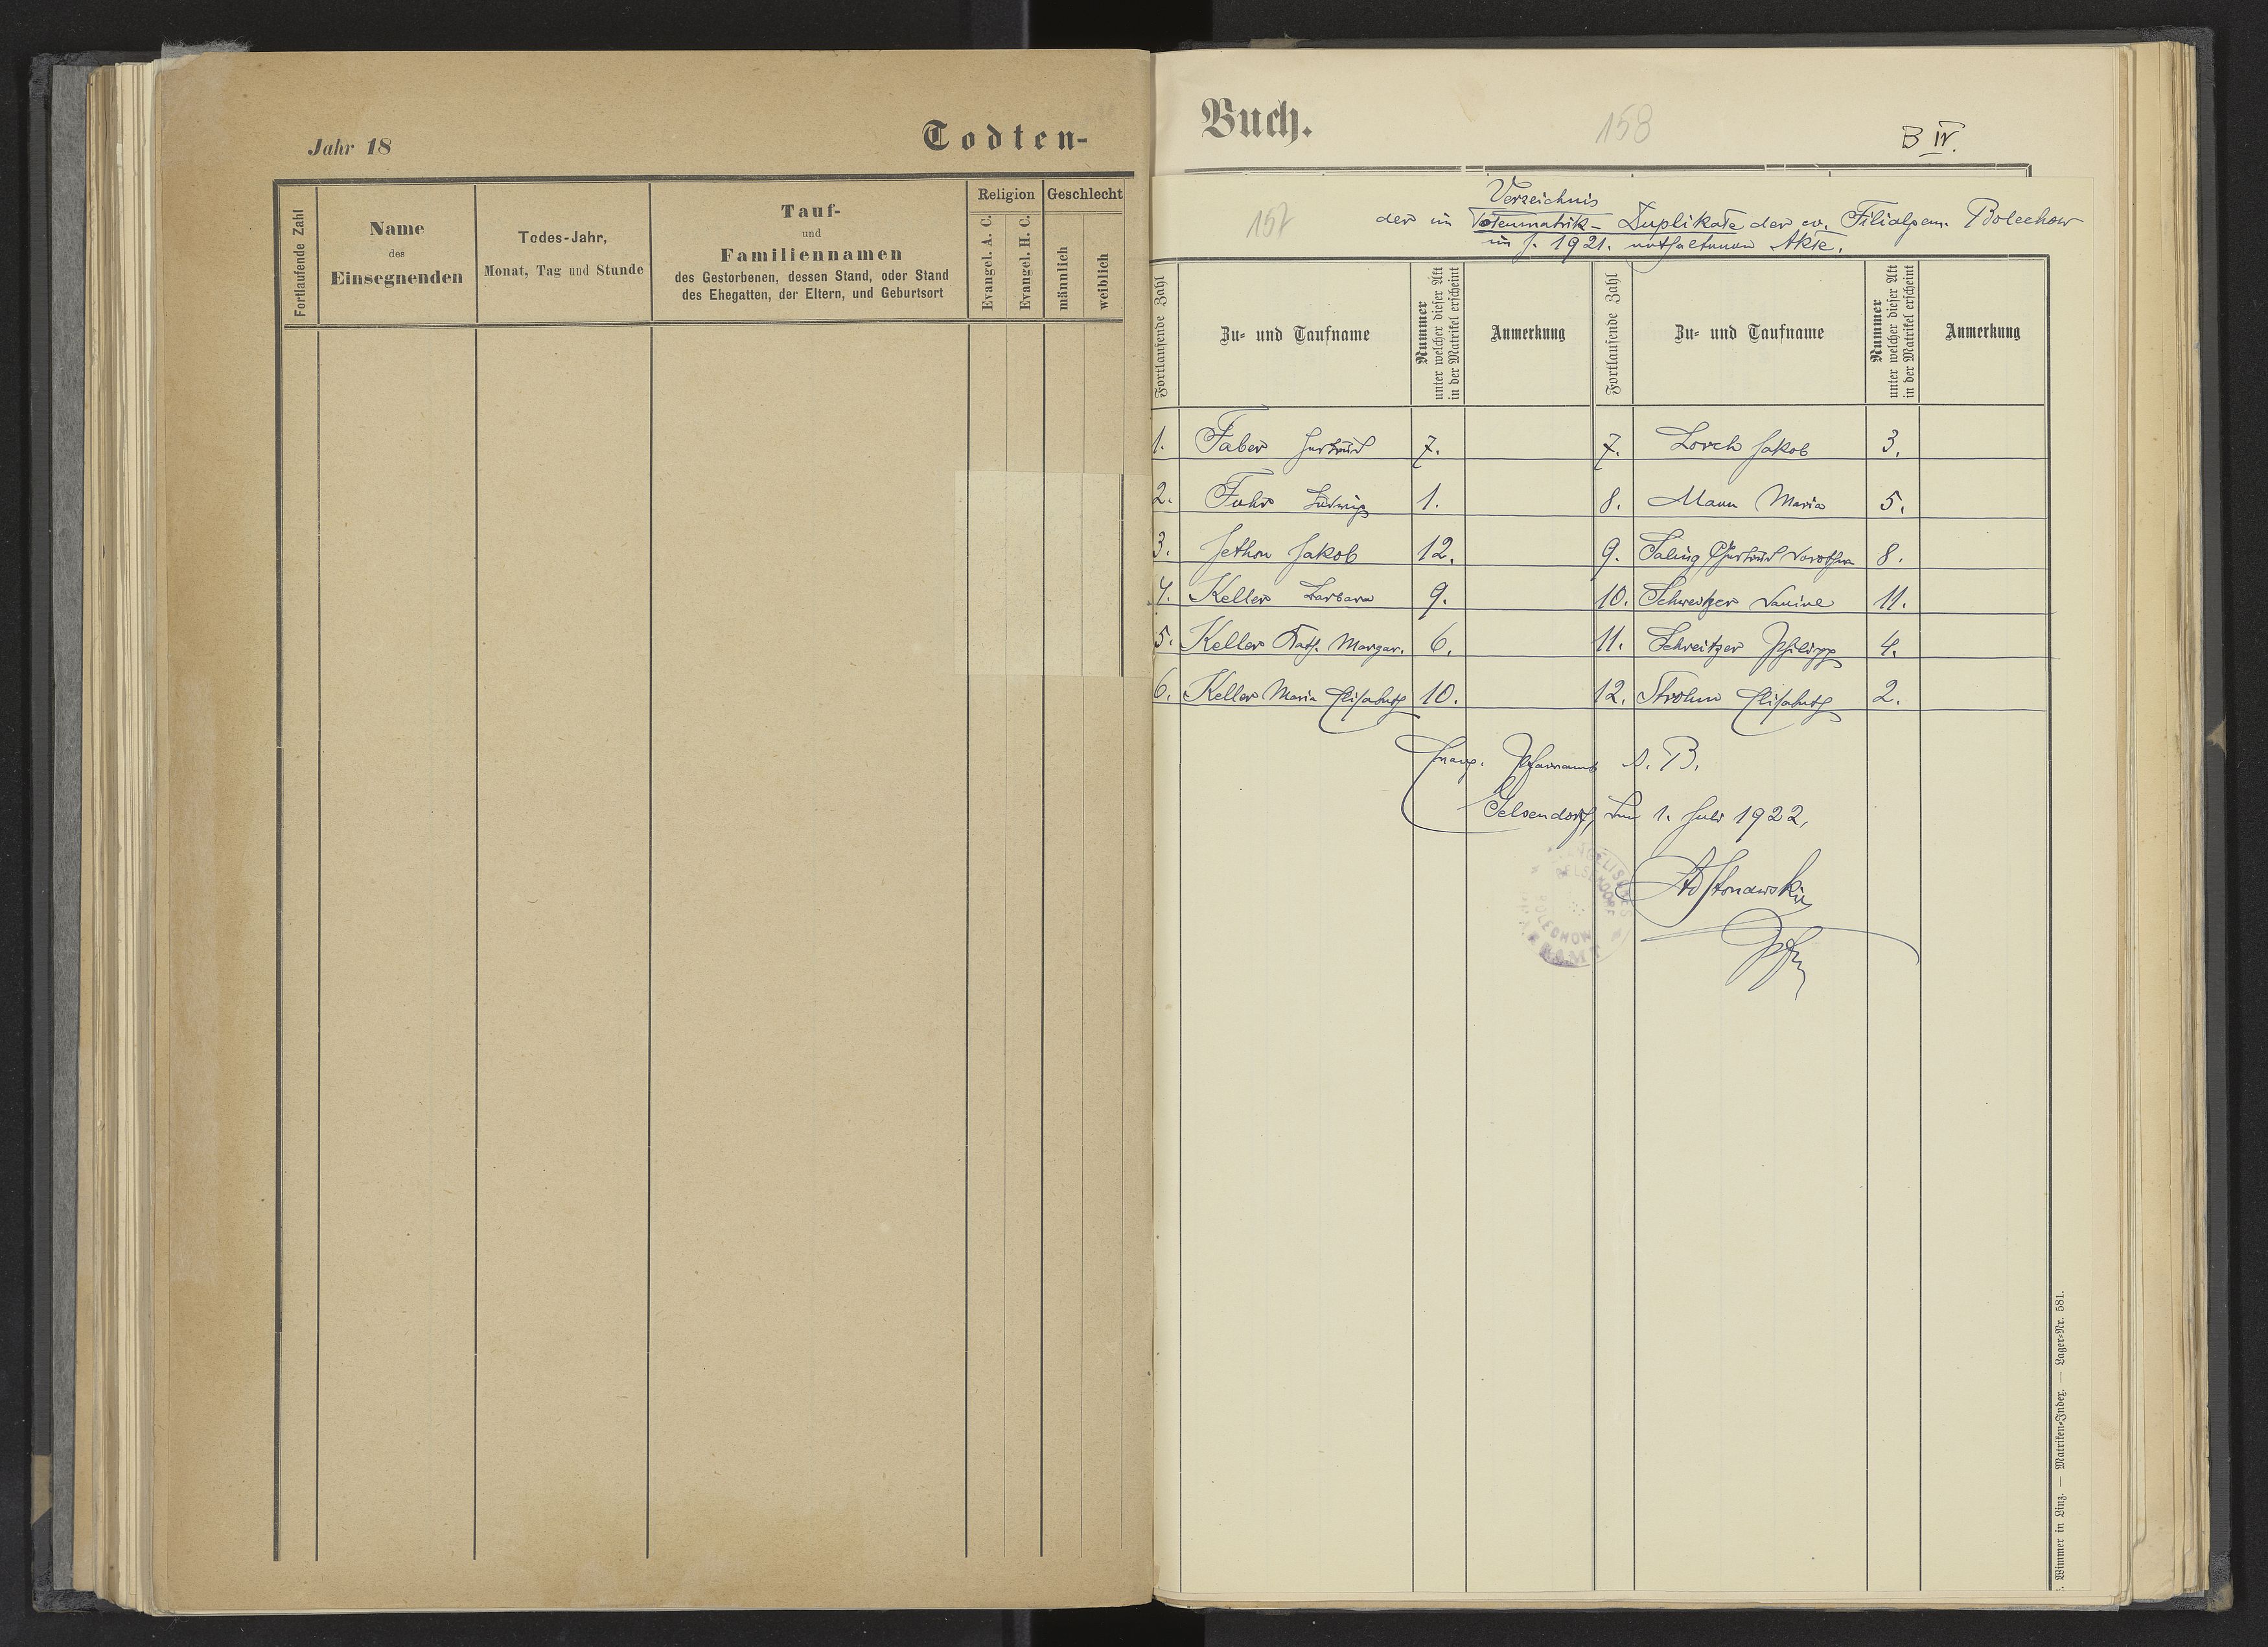 Jahr 18
Todten-
Fortlaufende Zahl
Name
des
Einsegnenden
Todes-Jahr,
Monat, Tag und Stunde
Tauf-
und
Familiennamen
des Gestorbenen, dessen Stand, oder Stand
des Ehegatten, der Eltern, und Geburtsort
Religion
Evangel. A. C.
Evangel. H. C.
Geschlecht
männlich
weiblich
Buch.
158
B IV.
157
Verzeichnis
der im Totenmatrik-Duplikate der ev. Filialgem. Bolechow
im J. 1921. enthaltenen Akte.
Fortlaufende Zahl
Zu- und Taufname
Nummer
unter welcher dieser Akt
in der Matrikel erscheint
Anmerkung
Fortlaufende Zahl
Zu- und Taufname
Nummer
unter welcher dieser Akt
in der Matrikel erscheint
Anmerkung
1. Faber Gertrud 7.
2. Fuhr Ludwig 1.
3. Jethon Jakob 12.
4. Keller Barbara 9.
5. Keller Kath. Margar. 6.
6. Keller Maria Elisabeth 10.
7. Lorch Jakob 3.
8. Mann Maria 5.
9. Saling Gertrud Dorothea 8.
10. Schweitzer Janine 11.
11. Schweitzer Philipp 4.
12. Strohm Elisabeth 2.
Evang. Pfarramt A. B.
Gelsendorf, den 1. Juli 1922.
GELSENDORF
BOLECHOW
. Wimmer in Linz. — Matriken-Index. — Lager-Nr. 581.